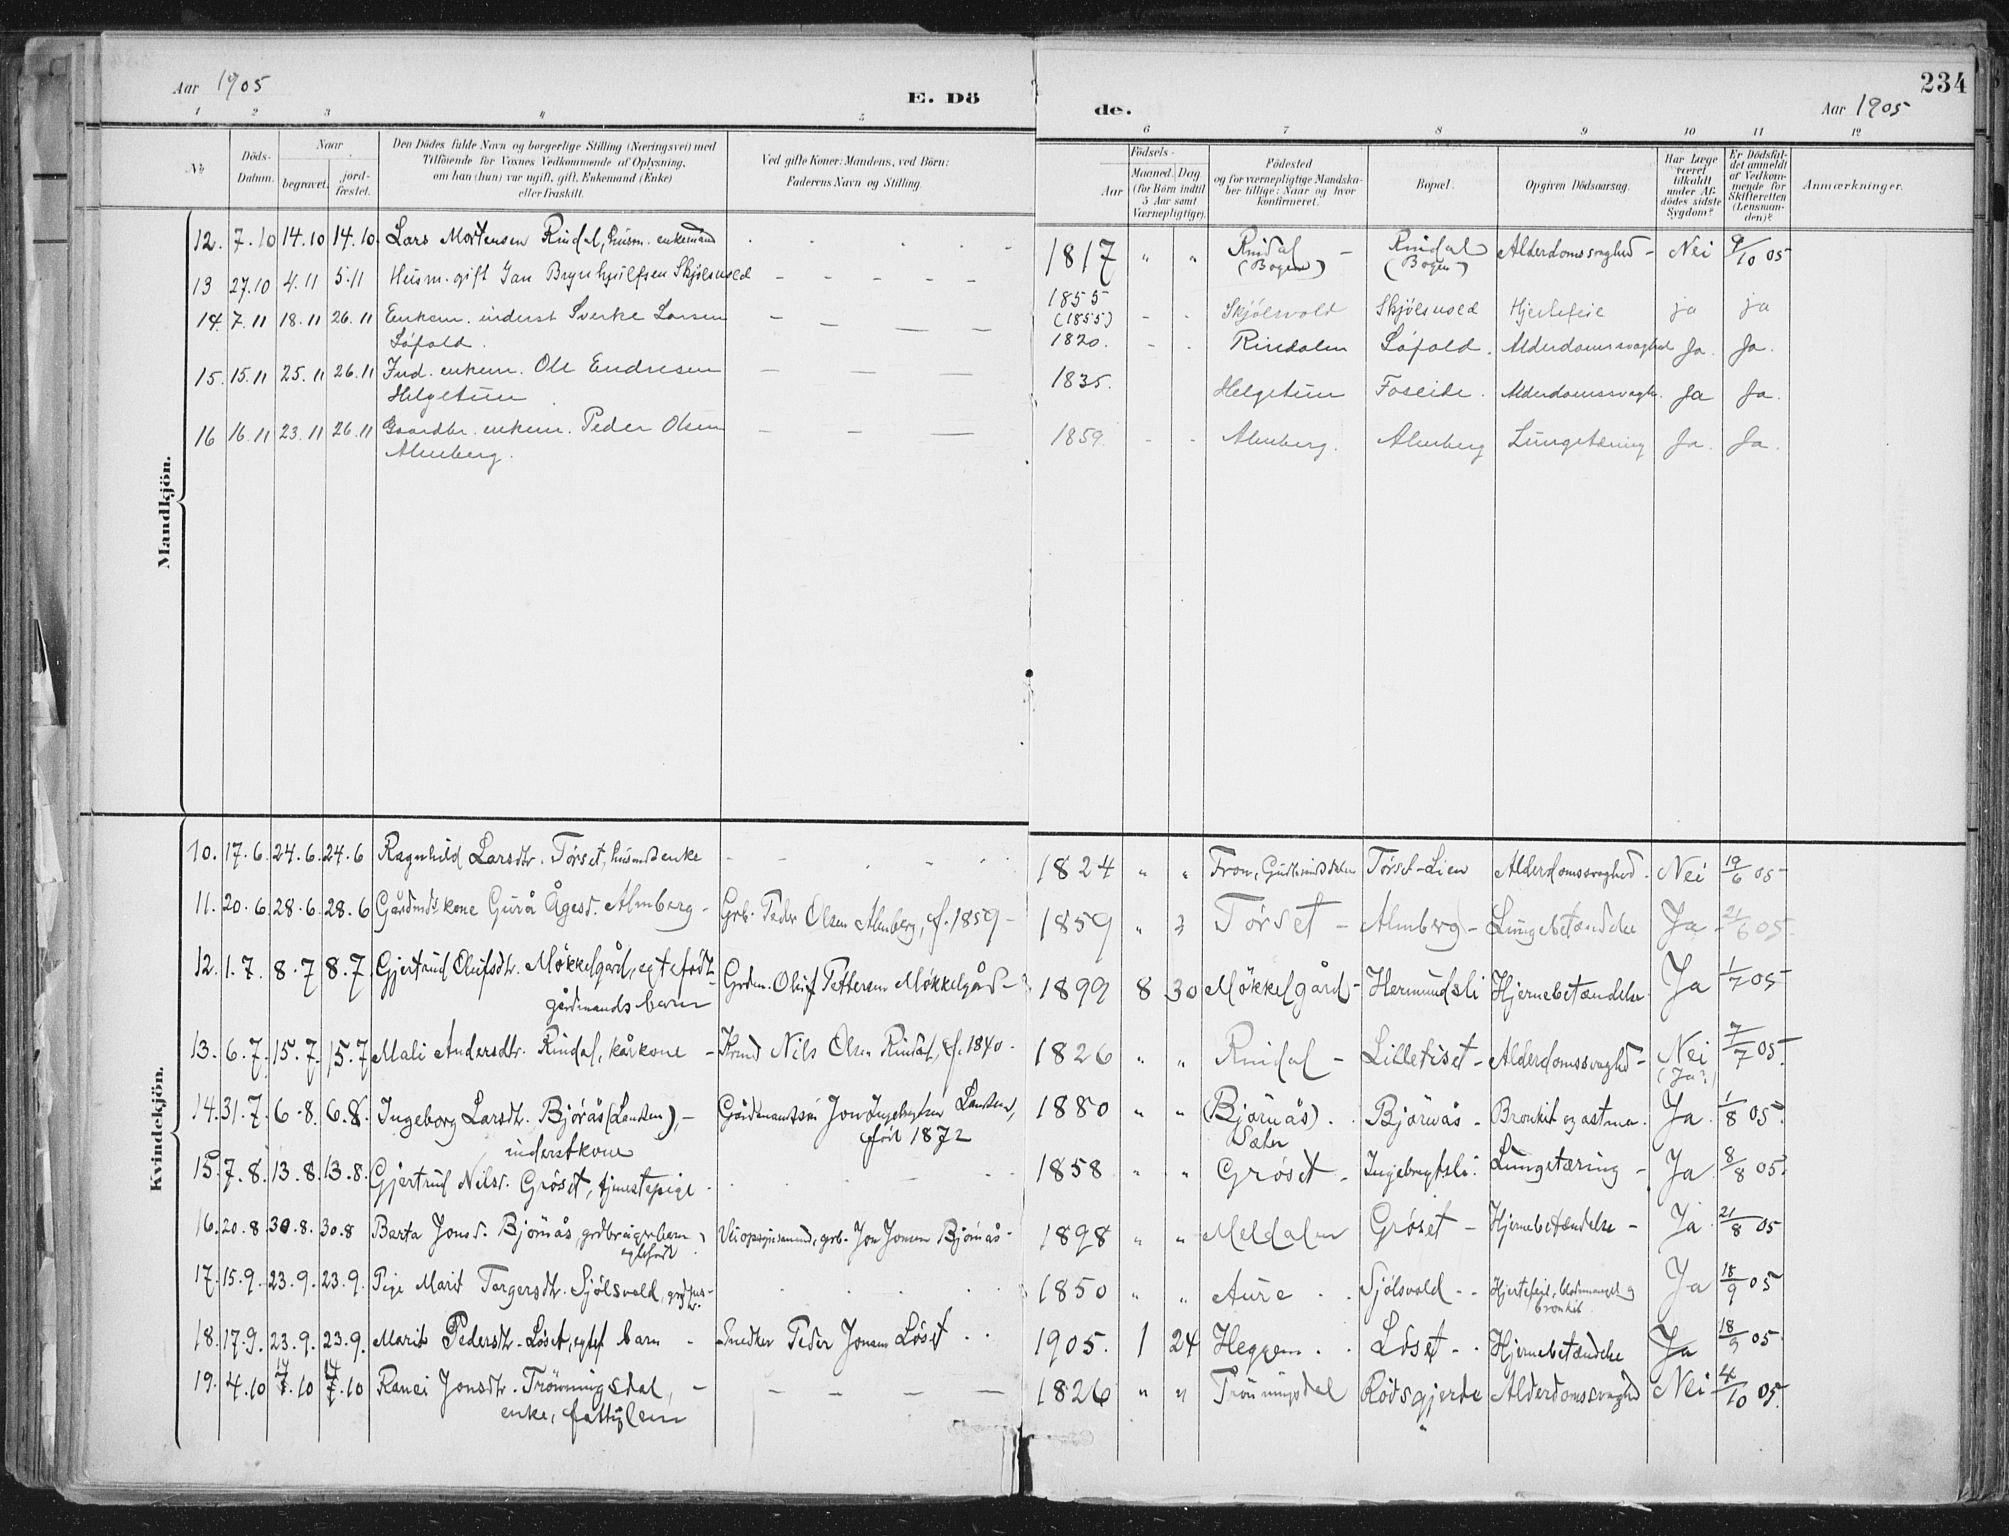 Aar 1905
E. Dö
de.
234
Aar 1905
1 2 3 4 5 6 7 8 9 10 11 12
No.
Döds-Datum.
Naar
begravet.
jord-fæstet.
Den Dödes fulde Navn og borgerlige Stilling (Næringsvei) med
Tilföiende for Voxnes Vedkommende af Oplysning,
om han (hun) var ugift, gift, Enkemand (Enke)
eller fraskilt.
Ved gifte Koner: Mandens, ved Börn:
Faderens Navn og Stilling.
Födsels-
Aar
Maaned. Dag
(for Börn indtil
5 Aar samt
Værnepligtige).
Födested
og for værnepligtige Mandska-
ber tillige: Naar og hvor
konfirmeret.
Bopæl.
Opgiven Dödsaarsag.
Har Læge
været
tilkaldt
under Af-
dödes sidste
Sygdom?
Er Dödsfal-
det anmeldt
af Vedkom-
mende for
Skifteretten
(Lensman-
den)?
Anmærkninger.
Mandkjön.
12. 7.10 14.10 14.10 Lars Mortensen Rindal, husm. enkemand 1817 " " Rindal (Bogen) Rindal (Bogen) Alderdomssvaghed - Nei 9/10 05
13 27.10 4.11 5.11 Husm. gift Jan Brynhjulfsen Skjølsvold 1855 (1855) Skjölsvold Skjølsvold Hjertefeie ja ja
14. 7.11 18.11 26.11 Enkem. inderst Sverke Larsen
Løfald. 1820. Rindalen Løfald. Alderdomssvaghed Ja. Ja.
15. 15.11 25.11 26.11 Ind. enkem. Ole Endresen
Helgetun 1835. Helgetun Foseide. Alderdomssvagh. Ja Ja.
16 16.11 23.11 26.11 Gaardbr. enkem. Peder Olsen
Almberg. 1859. Almberg. Almberg Lungetæring Ja. Ja.
Kvindekjön.
10. 17.6. 24.6. 24.6 Ragnhild Larsdtr. Tørset, husmdsenke 1824 " " Fron, Gudbrandsdalen Tørset-Lien Alderdomssvaghed. Nei 19/6 05
11. 20.6. 28.6. 28.6 Gårdmdskone Gurå Ågesd. Almberg - Grb. Peder Olsen Almberg, f. 1859 - 1859 " Tørset - Almberg - Lungebetændelse Ja 21/6 05.
12. 1.7. 8.7 8.7. Gjertrud Olufsdtr. Møkkelgård, egtefødt
gårdmands barn Grdm. Oluf Pettersen Møkkelgård - 1899 8 30 Møkkelgård - Hermundsli Hjernebetændelse Ja 1/7 05
13. 6.7. 15.7. 15.7 Mali Andersdtr. Rindal, kårkone - Nils Olsen Rindal, f. 1840 - 1826 " " Rindal - Lilletiset - Alderdomssvaghd - Nei (Ja?) 7/7 05.
14. 31.7. 6.8. 6.8. Ingeborg Larsdtr. Bjørås (Lansen), -
inderstkone Gårdmandssøn Jon Ingebrigtsen
født 1872 1880 " " (Bjørnås). Sæter Bjørnås - Bronkit og astma. Ja. 1/8 05.
15. 7.8. 13.8. 13.8. Gjertrud Nilsd. Grøset, tjenestepige 1858 " " Grøset - Ingebrigtsli. Lungetæring - Ja 8/8 05.
16. 20.8 30.8. 30.8 Barta Jonsd. Bjørnås, grdbrugerbarn,
egtefødt Veiopsynsmand, grb. Jon Jonsen Bjørnås - 1898 " " Meldalen Grøset - Hjernebetændelse - Ja. 21/8 05
17. 15.9. 23.9. 23.9. Pige Marit Torgersdtr. Sjølsvold, 1850 " " Aure Sjølsvold - - Hjertefeil, blodmangel og
bronkit. Ja 18/9 05
18. 17.9. 23.9. 23.9. Marit Pedersdtr. Løset, egtef barn - Snedker Peder Jonsen Løset 1905. 1 24 Heggem. Løset - Hjernebetændelse Ja 18/9 05.
19. 4.10 14.10 14.10 Ranei Jonsdtr. Trønningsdal, -
enke, fattiglem 1826 " " Trønningsdal Rødsgjerde Alderdomssvaghd Nei 4/10 05.